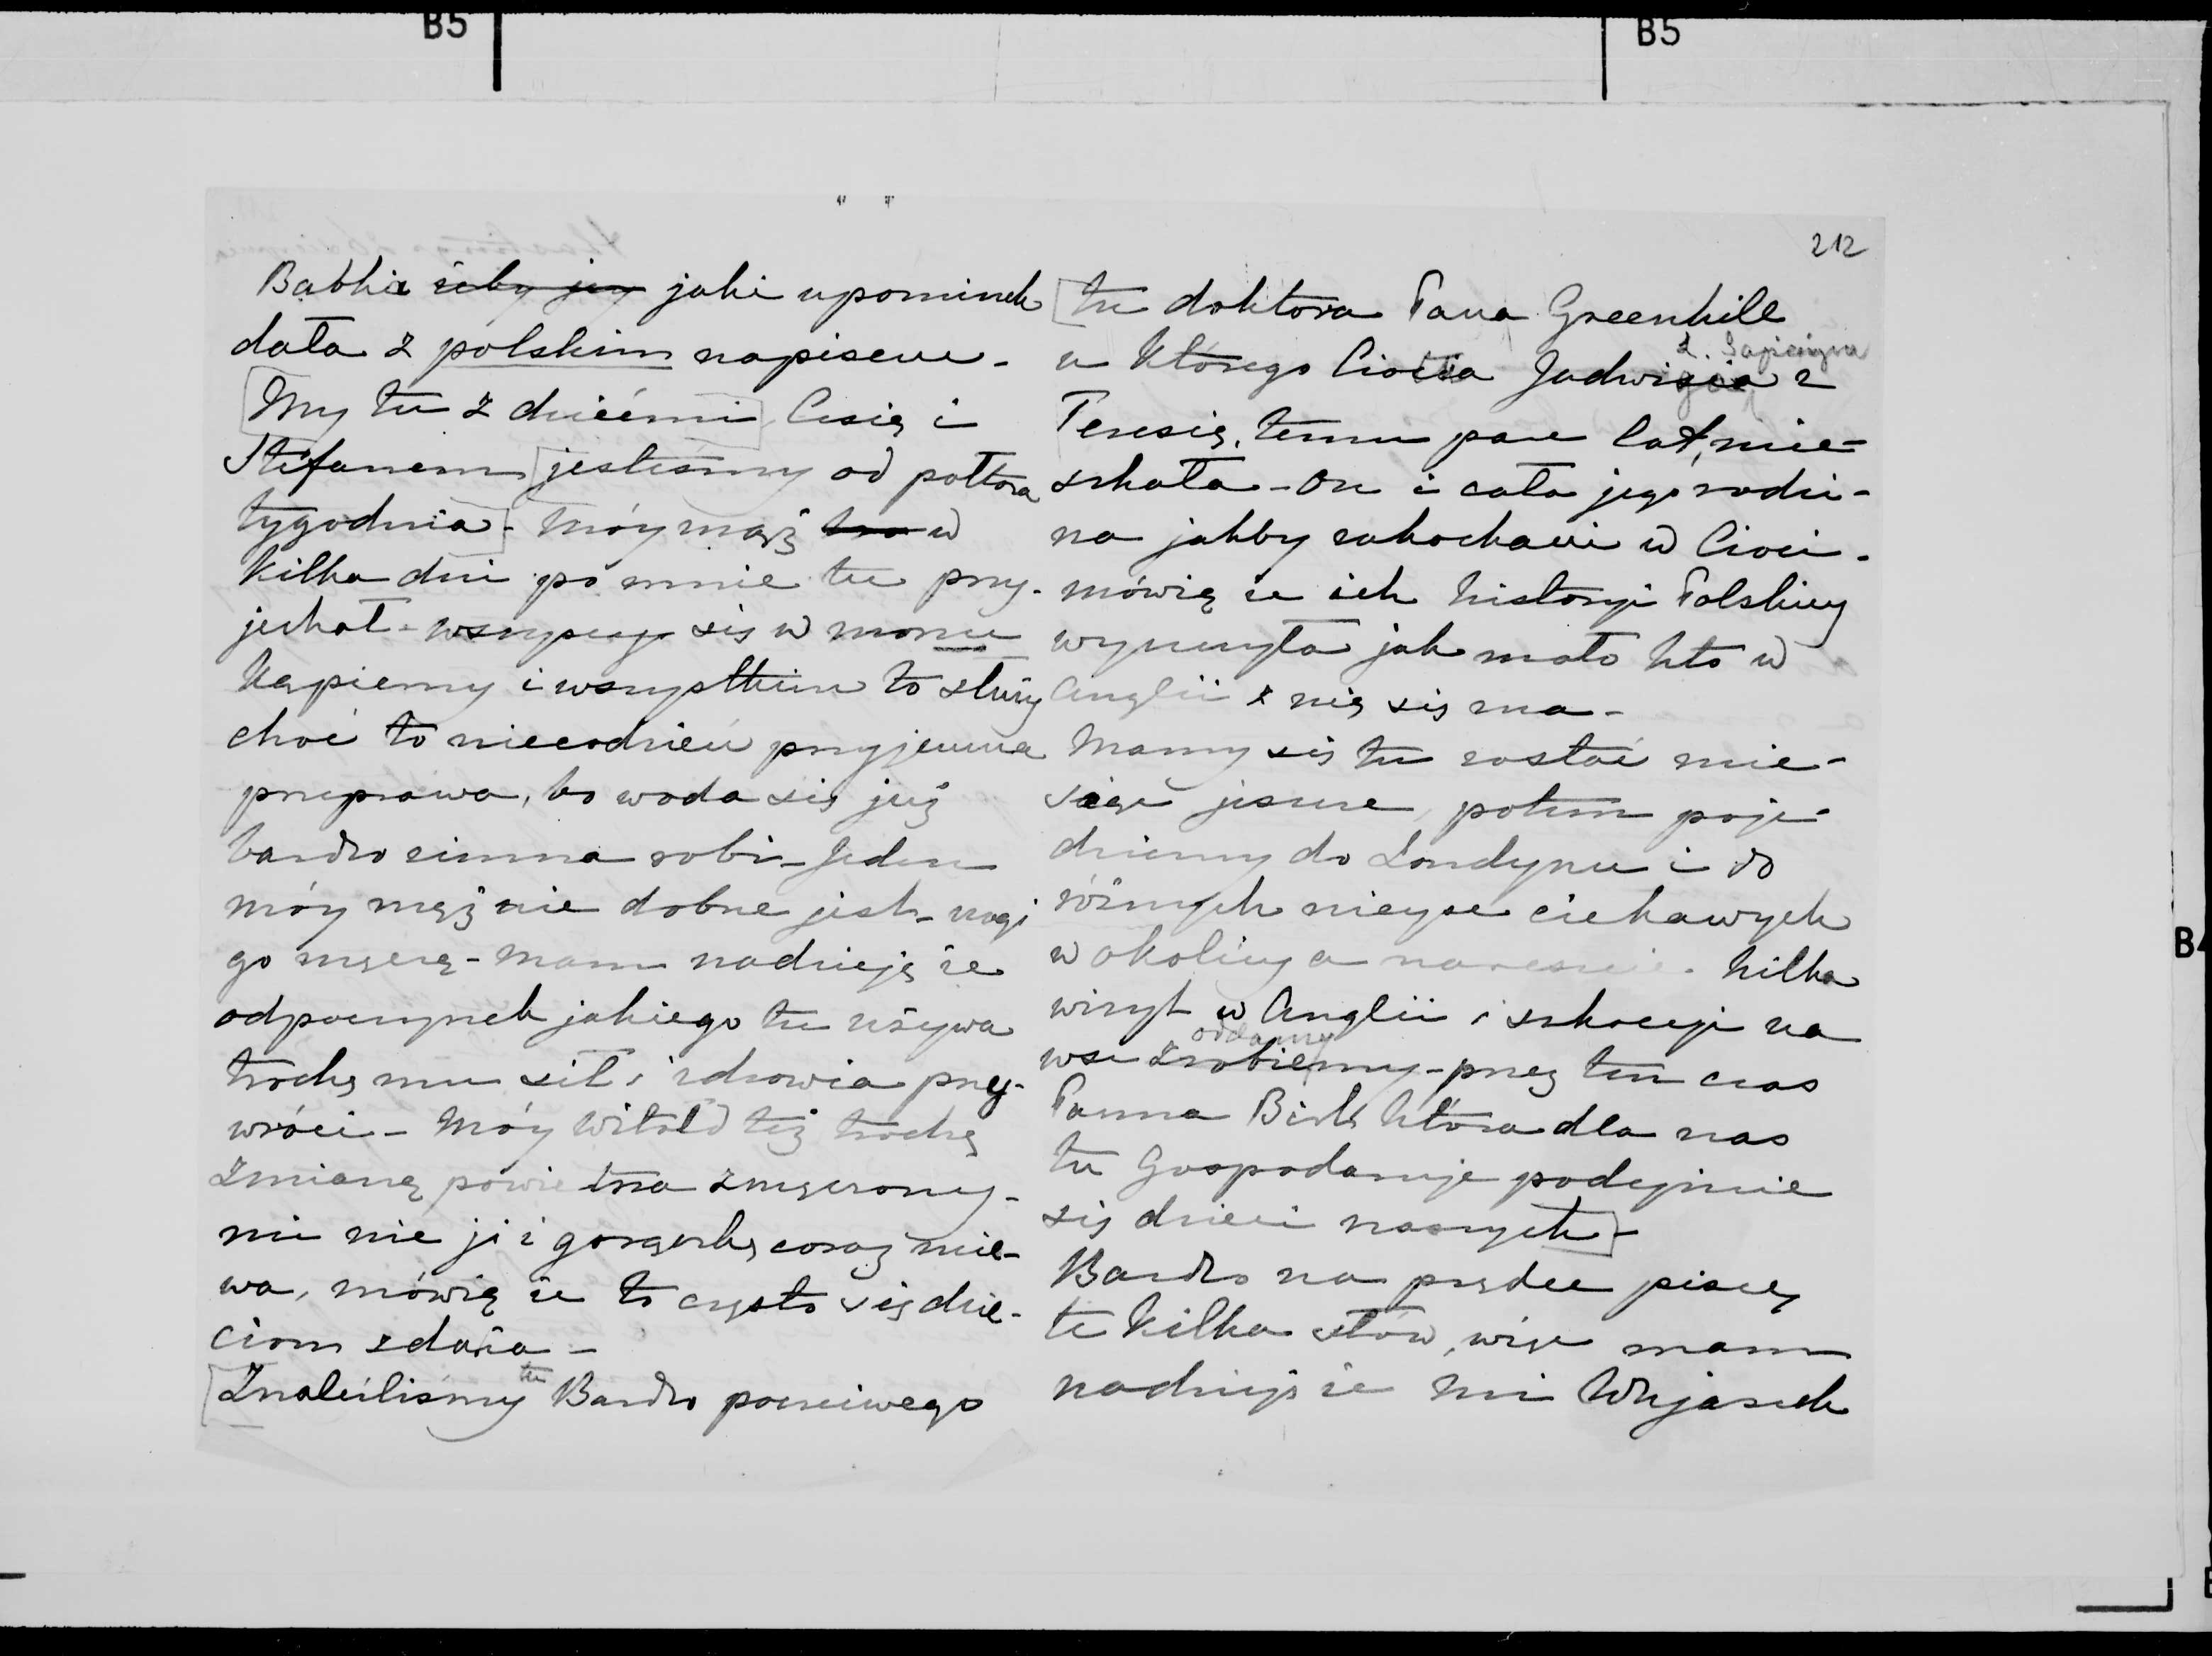 B5
B5
212
Babkia żeby jey jaki upominek
dała z polskim napisem -
[My tu z dziećmi] Cesią i
Stefanem [jesteśmy od półtora
tygodnia] - móy mąż w
kilka dni po mnie tu przy-
jechał - wszyscy się w morzu
kąpiemy i wszystkim to służy
choć to niecodzień przyjemna
przeprawa, bo woda się już
bardzo zimna robi - Jeden
móy mąż nie dobrze jest - nogi
go męczą - mam nadzieję że
odpoczynek jakiego tu używa
trochę mu sił i zdrowia przy-
wróci - Móy Witold też trochę
zmianą powietrza zmęczony -
mi nie ji i gorączkę coraz mie-
wa, mówią że to często się dzie-
ciom zdaża -
[Znaleźliśmy tu Bardzo poczciwego
[tu doktora Pana Greenhill
u którego Ciocia Jadwisia z
L. Sapieżyna
Teresią, temu parę lat, mie-
szkała - On i cała jego rodzi-
na jakby zakochani w Cioci -
mówią że ich historyi Polskiey
wyuczyła jak mało kto w
Anglii z nią się zna -
Mamy się tu zostać mie-
siąc jeszcze, potem poje-
dziemy do Londynu i do
różnych mieysc ciekawych
w okolicy a nareszcie kilka
wizyt w Anglii i Szkocyi na
wsi zrobiemy - przez ten czas
oddamy
Panna Birk która dla nas
tu Gospodaruje podeymie
się dzieci naszych] -
Bardzo na prędce piszę
te kilka słów, więc mam
nadzieję że mi Wujaszek